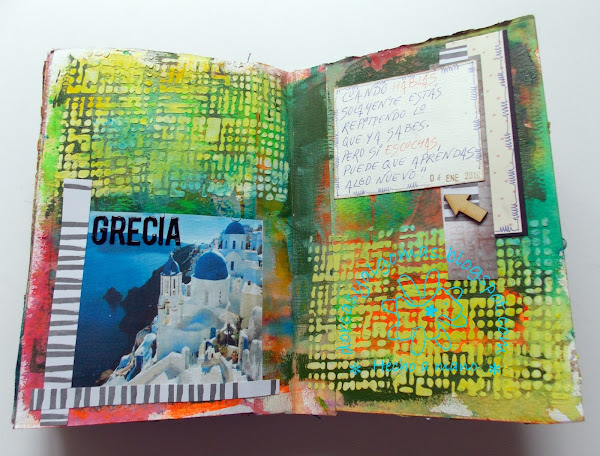 GRECIA
"CUANDO HABLAS
SOLAMENTE ESTÁS
REPITIENDO LO
QUE YA SABES.
PERO SI ESCUCHAS,
PUEDE QUE APRENDAS
ALGO NUEVO"
04 ENE 201
* Hecho a mano *